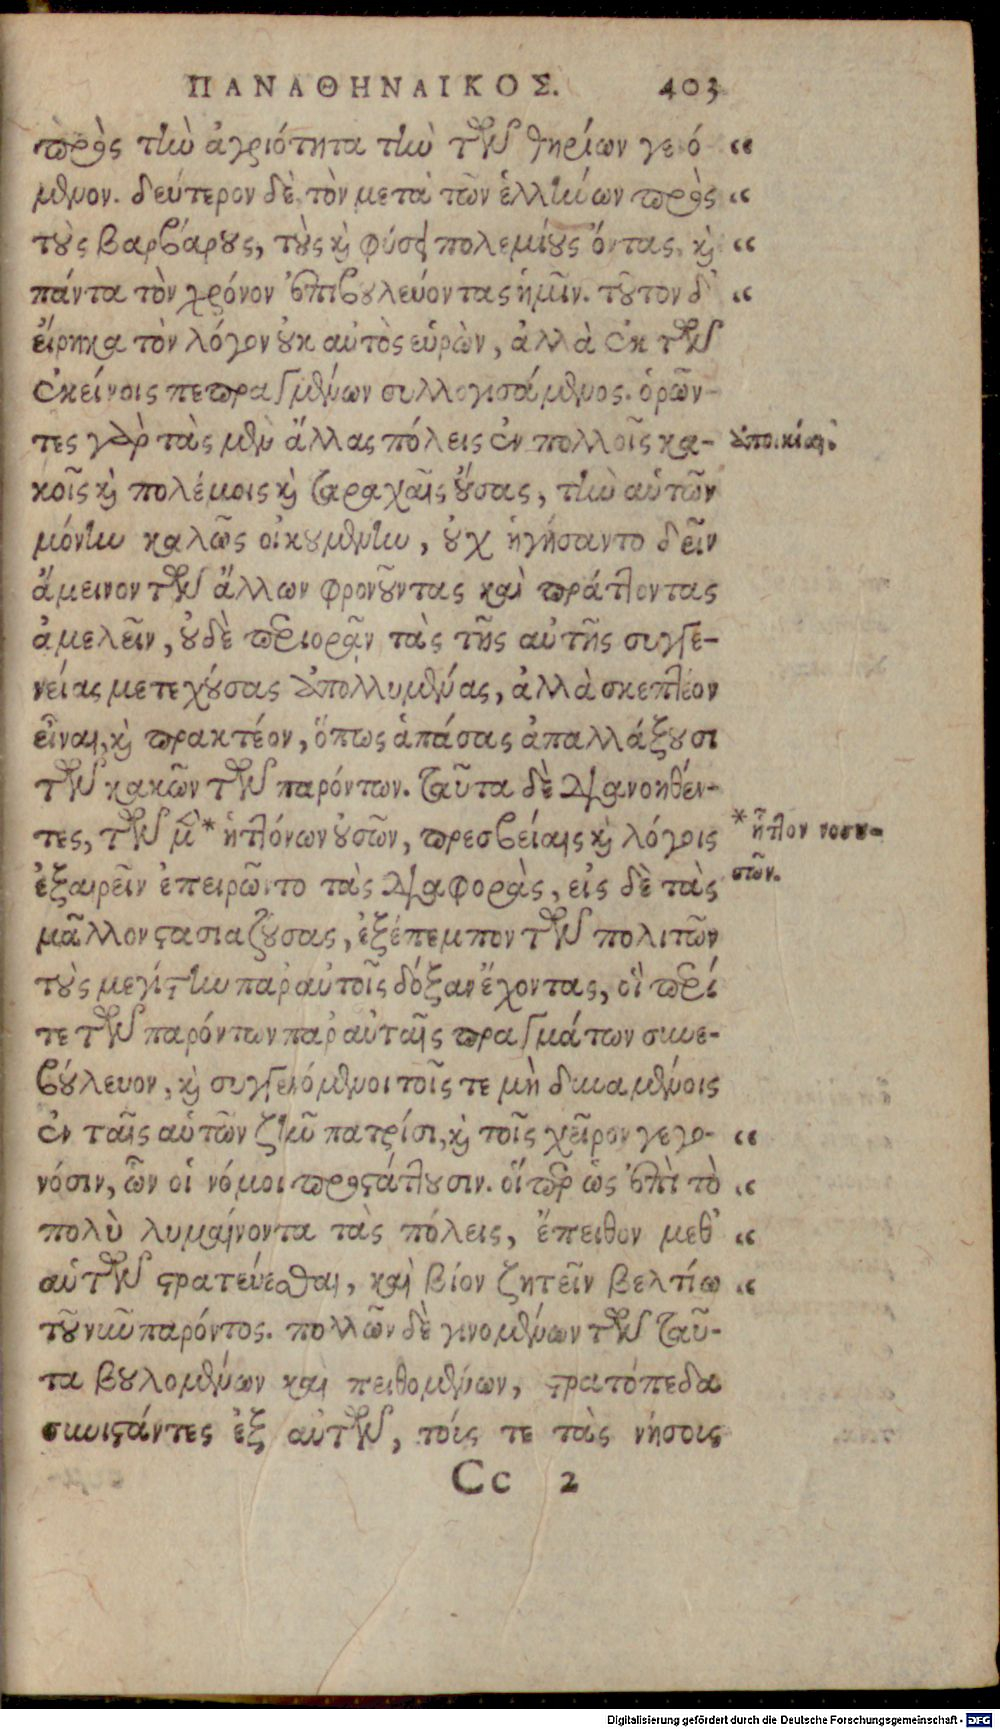 ΠΑΝΑΘΗΝΑΙΚΟΣ. 403
πρὸς τὴν ἀγριότητα τὴν τῶν θηρίων γενό- “
μενον. δεύτερον δὲ τὸν μετὰ τῶν ἑλλήνων πρὸς “
τοὺς βαρβάρους, τοὺς καὶ φύσει πολεμίους ὄντας, καὶ “
πάντα τὸν χρόνον ἐπιβουλεύοντας ἡμῖν. τοῦτον δ' “
εἴρηκα τὸν λόγον οὐκ αὐτὸς εὑρὼν, ἀλλὰ ἐκ τῶν
ἐκείνοις πεπραγμένων συλλογισάμενος. ὁρῶν-
τες γὰρ τὰς μὲν ἄλλας πόλεις ἐν πολλοῖς κα- ἀποικίαι.
κοῖς καὶ πολέμοις καὶ ταραχαῖς οὔσας, τὴν αὑτῶν
μόνην καλῶς οἰκουμένην, οὐχ ἡγήσαντο δεῖν
ἄμεινον τῶν ἄλλων φρονοῦντας καὶ πράττοντας
ἀμελεῖν, οὐδὲ περιορᾷν τὰς τῆς αὐτῆς συγγε-
νείας μετεχούσας ἀπολλυμένας, ἀλλὰ σκεπτέον
εἶναι, καὶ πρακτέον, ὅπως ἁπάσας ἀπαλλάξουσι
τῶν κακῶν τῶν παρόντων. ταῦτα δὲ διανοηθέν-
τες, τῶν μὲν * ἡττόνων οὐσῶν, πρεσβείαις καὶ λόγοις * ἧττον νοσου-
ἐξαιρεῖν ἐπειρῶντο τὰς διαφορὰς, εἰς δὲ τὰς σῶν.
μᾶλλον στασιαζούσας, ἐξέπεμπον τῶν πολιτῶν
τοὺς μεγίστην παρ' αὐτοῖς δόξαν ἔχοντας, οἳ περί
τε τῶν παρόντων παρ' αὐταῖς πραγμάτων συνε-
βούλευον, καὶ συγγενόμενοι τοῖς τε μὴ δυναμένοις
ἐν ταῖς αὑτῶν ζῆν πατρίσι, καὶ τοῖς χεῖρον γεγο- “
νόσιν, ὧν οἱ νόμοι προστάττουσιν. οἵπερ ὡς ἐπὶ τὸ “
πολὺ λυμαίνονται τὰς πόλεις, ἔπειθον μεθ' “
αὑτῶν στρατεύεσθαι, καὶ βίον ζητεῖν βελτίω “
τοῦ νῦν παρόντος. πολλῶν δὲ γινομένων τῶν ταῦ-
τα βουλομένων καὶ πειθομένων, στρατόπεδα
συνιστάντες ἐξ αὐτῶν, τούς τε τὰς νήσους
Cc 2
Digitalisierung gefördert durch die Deutsche Forschungsgemeinschaft - DFG